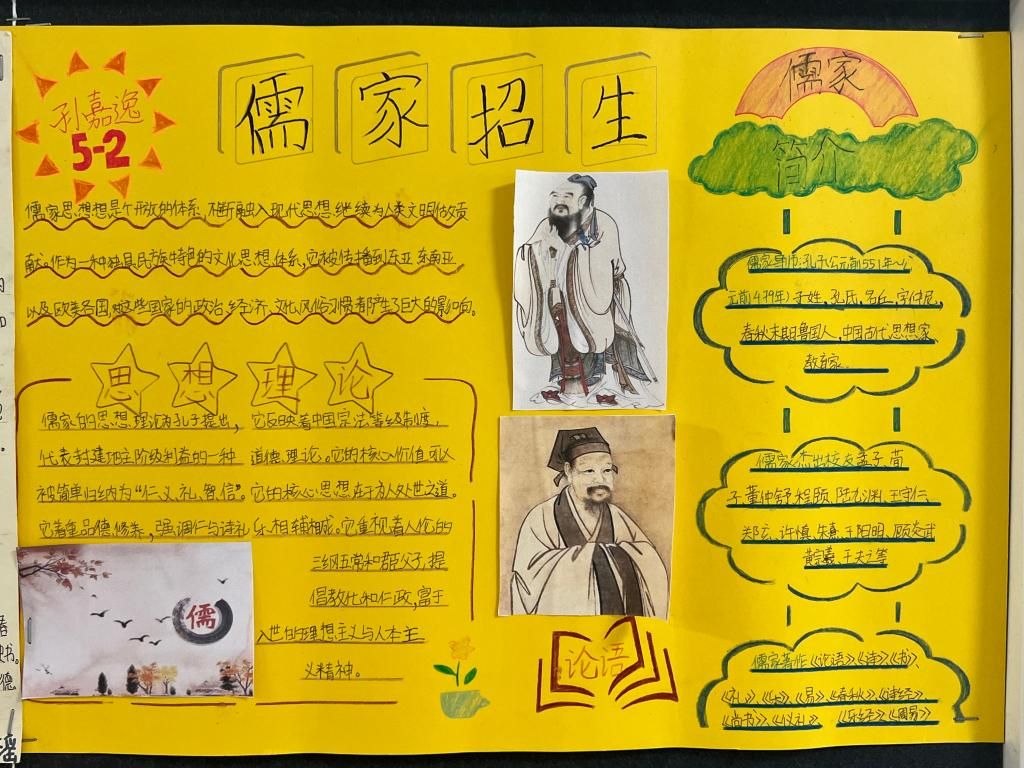 孙嘉逸
5-2
儒家招生
儒家思想想是个开放的体系、不断融入现代思想.继续为人类文明做贡
献。作为一种独具民族特色的文化思想体系,它被传播到东亚、东南亚
以及欧美各国,对这些国家的政治、经济、文化、风俗习惯都产生了巨大的影响。
思想理论
儒家的思想理论为孔子提出,它反映着中国宗法等级制度,
代表封建地主阶级利益的一种道德理论。它的核心价值可以
被简单归纳为“仁、义、礼、智、信”。它的核心思想在于为人处世之道。
它着重品德修养,强调仁与诗礼乐相辅相成。它重视着人伦的
三纲五常和君臣父子,提
倡教化和仁政,富于
入世的理想主义与人本主
义精神。
儒
论语
儒家
简介
儒家导师:孔子(公元前551年~公
元前479年)子姓,孔氏,名丘,字仲尼,
春秋末期鲁国人,中国古代思想家、
教育家。
儒家杰出校友孟子、荀
子、董仲舒、程颐、陆九渊、王守仁、
郑玄、许慎、朱熹、王阳明、顾炎武
黄宗羲、王夫之等
儒家著作《论语》《诗》《书》、
《礼》、《乐》《易》《春秋》《诗经》
《尚书》、《仪礼》《乐经》《周易》